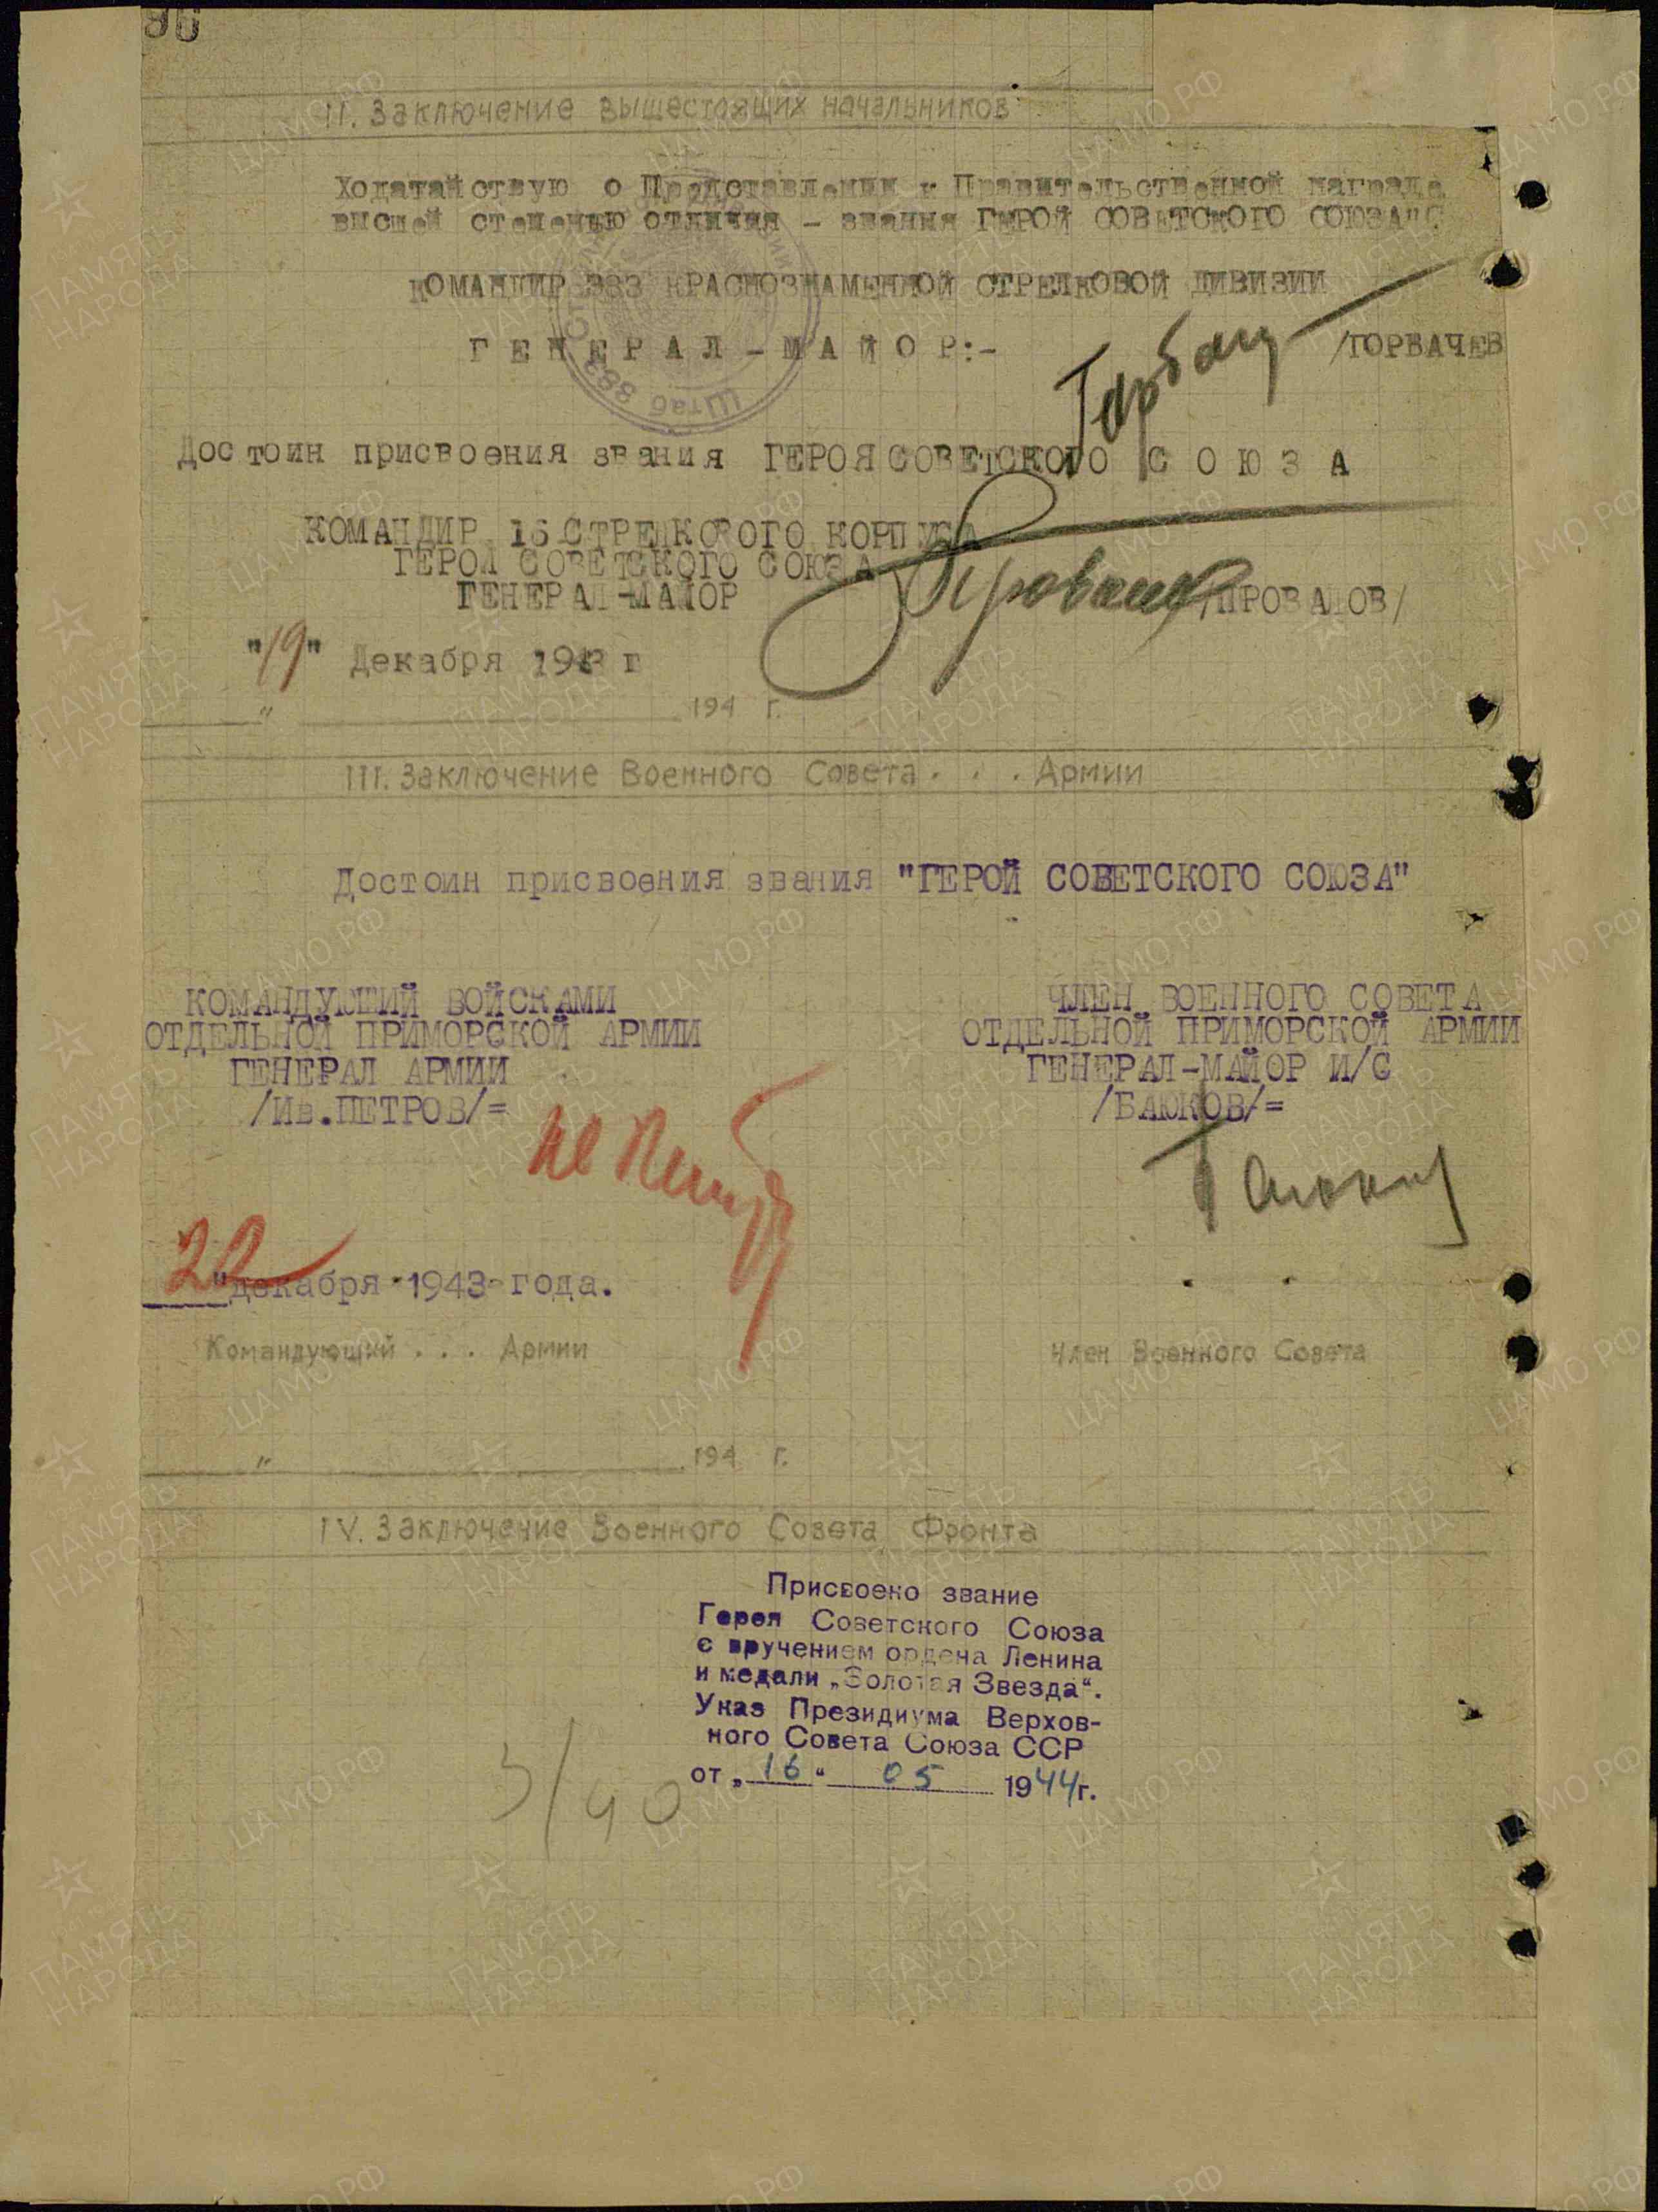 96
II. Заключение вышестоящих начальников
Ходатайствую о Представлении к Правительственной награде
высшей степенью отличия - звания ГЕРОЙ СОВЕТСКОГО СОЮЗА".
КОМАНДИР 383 КРАСНОЗНАМЕННОЙ СТРЕЛКОВОЙ ДИВИЗИИ
ГЕНЕРАЛ-МАЙОР:-
/ГОРБАЧЕВ
Штаб 383
Достоин присвоения звания ГЕРОЯ СОВЕТСКОГО СОЮЗА
КОМАНДИР 16 СТРЕЛКОВОГО КОРПУСА
ГЕРОЙ СОВЕТСКОГО СОЮЗА
ГЕНЕРАЛ-МАЙОР
/ПРОВАЛОВ/
"19" Декабря 1943 г
" 194 г.
III. Заключение Военного Совета . . . Армии
Достоин присвоения звания "ГЕРОЙ СОВЕТСКОГО СОЮЗА"
КОМАНДУЮЩИЙ ВОЙСКАМИ
ОТДЕЛЬНОЙ ПРИМОРСКОЙ АРМИИ
ГЕНЕРАЛ АРМИИ
/Ив.ПЕТРОВ/=
ЧЛЕН ВОЕННОГО СОВЕТА
ОТДЕЛЬНОЙ ПРИМОРСКОЙ АРМИИ
ГЕНЕРАЛ-МАЙОР И/С
/БАЮКОВ/=
"декабря 1943 года.
Командующий . . . Армии
Член Военного Совета
" 194 г.
IV. Заключение Военного Совета Фронта
Присвоено звание
Героя Советского Союза
с вручением ордена Ленина
и медали „Золотая Звезда“.
Указ Президиума Верхов-
ного Совета Союза ССР
от „16“ 05 1944г.
ЦА МО РФ
ПАМЯТЬ
НАРОДА